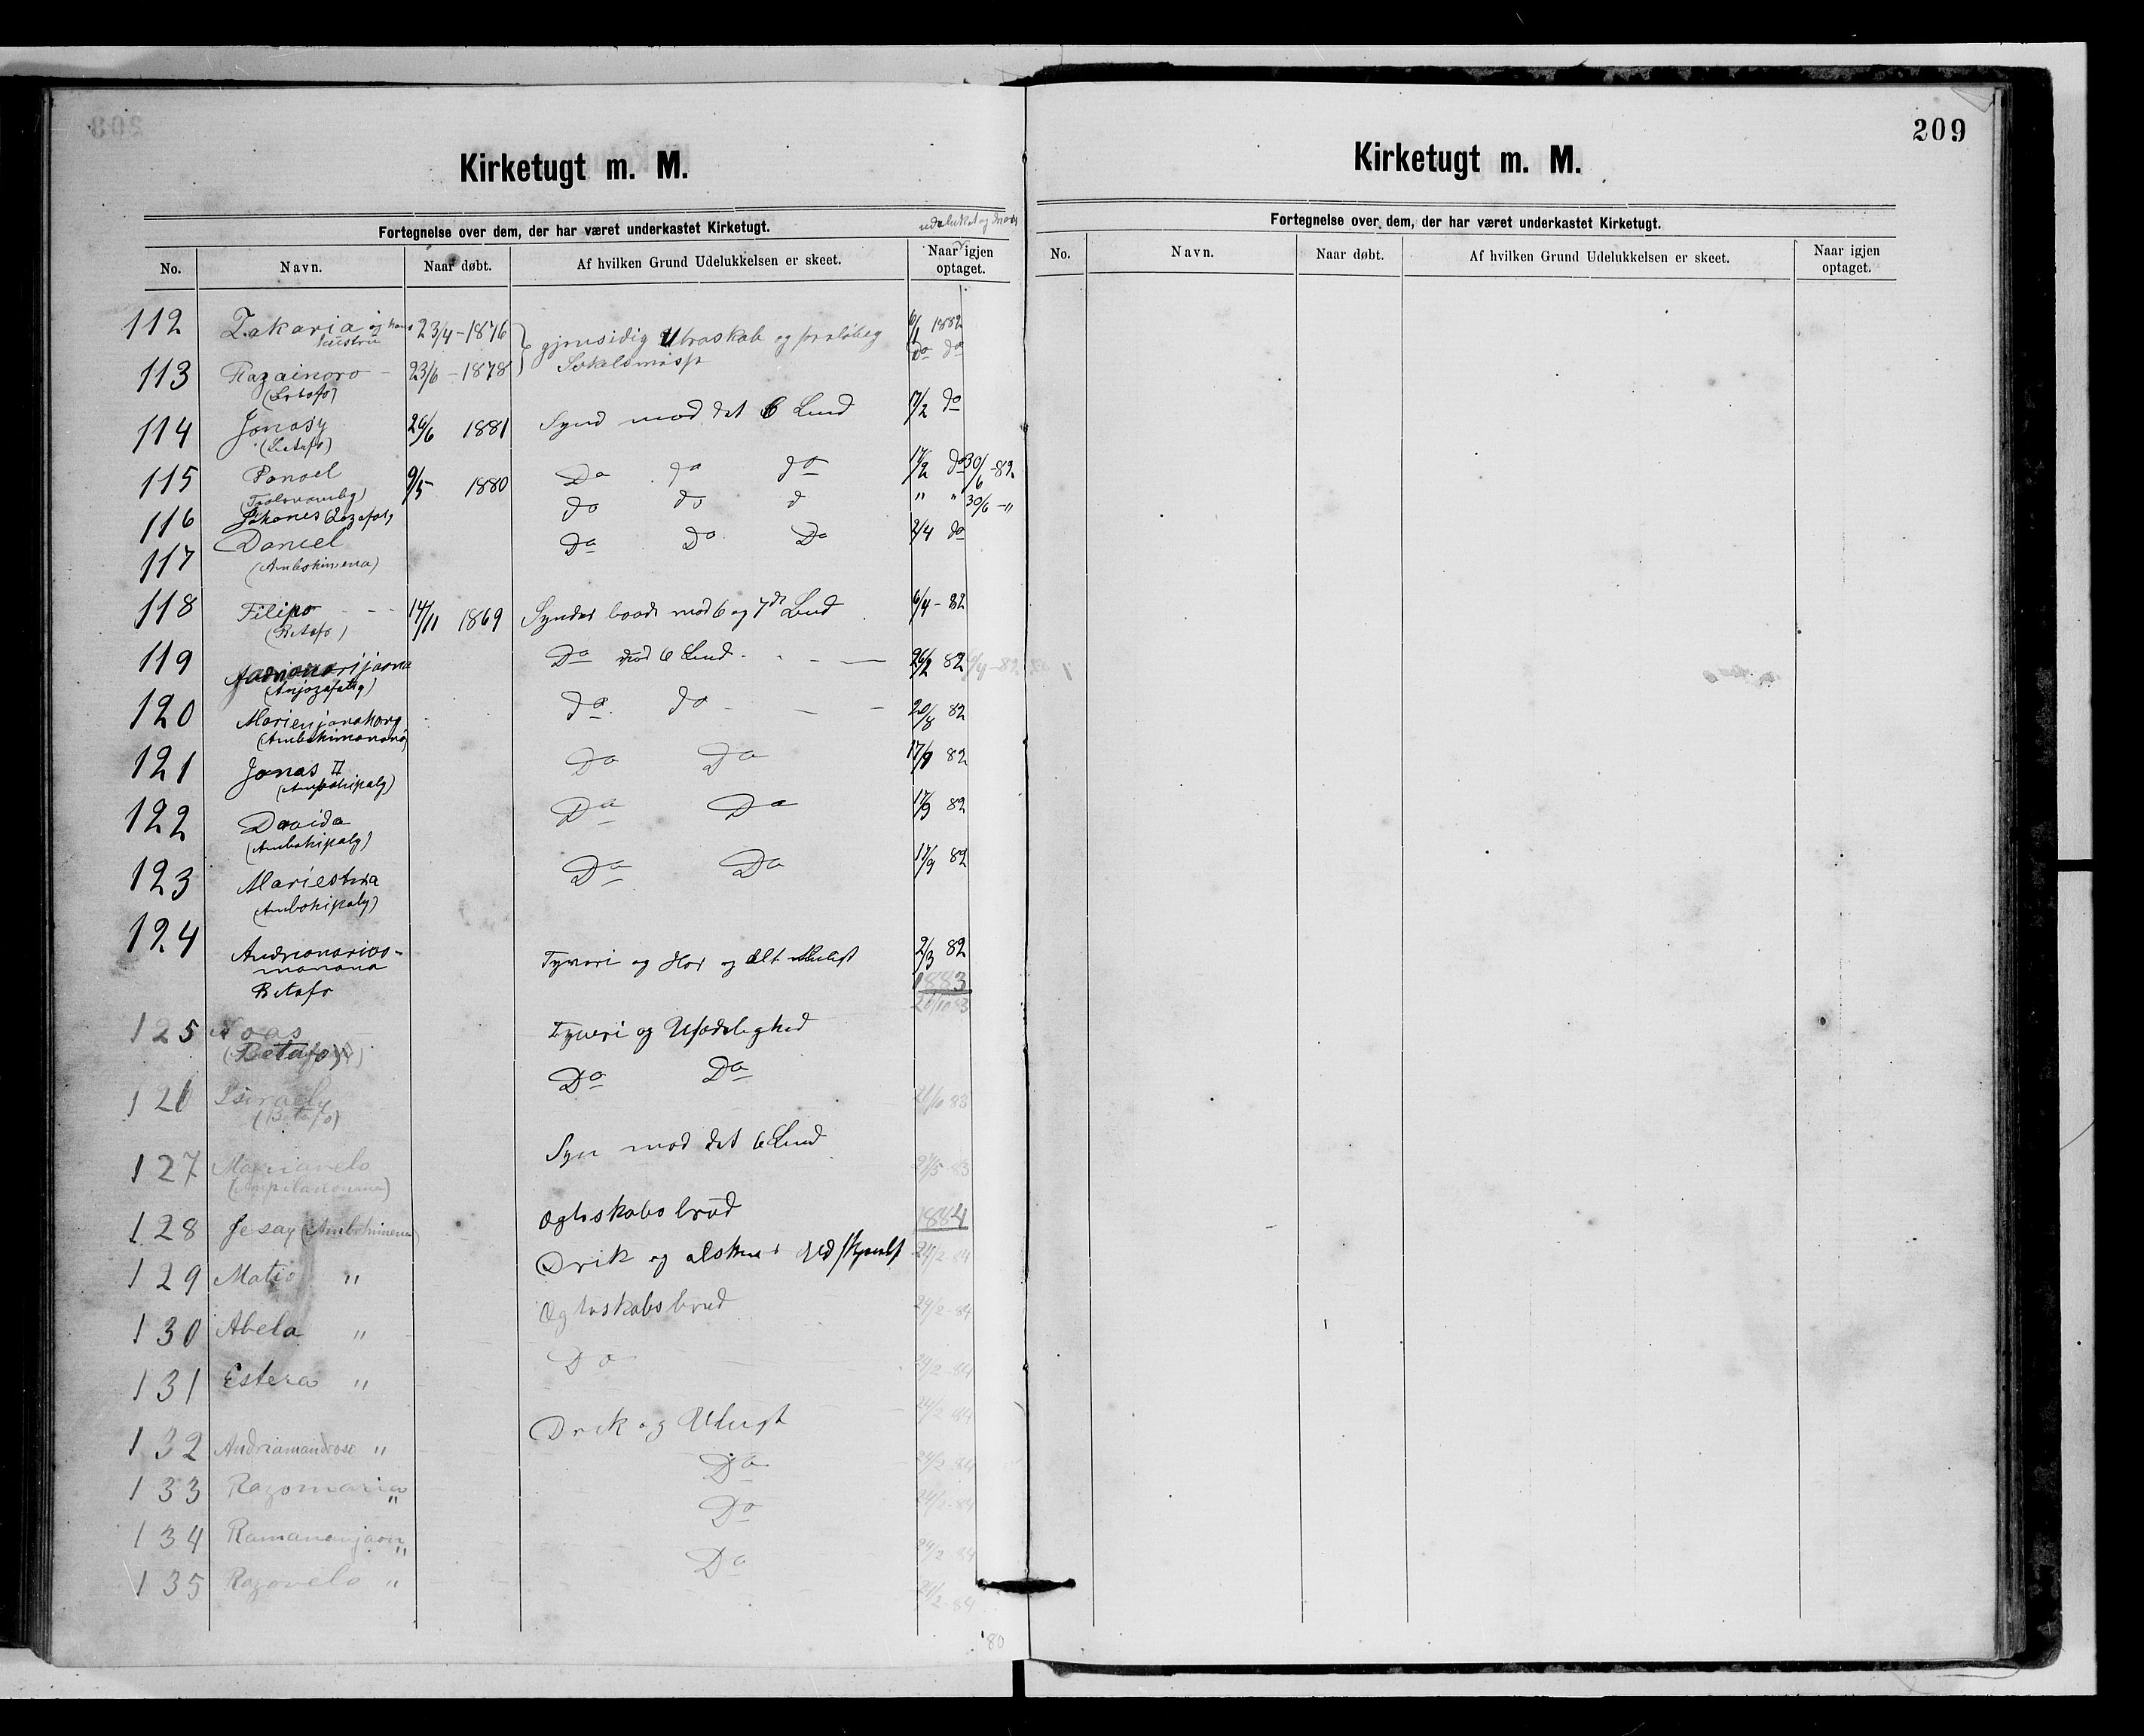 Kirketugt m. M.
Fortegnelse over dem, der har været underkastet Kirketugt.
udelukket og
No. Navn. Naar døbt. Af hvilken Grund Udelukkelsen er skeet. Naar igjen optaget.
112 Zakaria og hans hustru 23/4-1876 gjensidig Utroskab og foreløbig 6/1 1882
113 Razainoro 23/6-1878 do do
(Betafo)
114 Jonasy 26/6 1881 Synd mod det 6 Bud 17/2 do
(Betafo)
115 9/5 1880 Do do do 17/2 do 30/6-82
116 Johanes do do d " " 30/6-"
117 Daniel Do Do Do 2/4 do
(Ambohimena)
118 Filipo 14/11 1869 Synder baade mod 6 og 7de Bud 6/4-82
(Betafo)
119 Do mod 6 Bud 26/2 82
120 do do 20/8 82
(Ambohimanana)
121 Jonas II Do Do 17/9 82
(Ambohipaly)
122 Davida Do Do 17/9 82
(Ambohipaly)
123 Do Do 17/9 82
(Ambohipaly)
124 Andrianarivo-
manana Tyveri og Hor og alt Muligt 2/3 82
Betafo 1883
125 Noas Tyveri og Usædelighed
(Betafo)
126 Israely Do Do 83
(Betafo)
127 Marianelo Syn mod det 6 Bud 83
128 Jesay (Ambohimena) Ægteskabsbrud 1884
129 Matio " Drik og 24/2 84
130 Abela " Ægteskabsbrud 24/2-84
131 Estera " Do 24/2-84
132 Andriamandroso " Drik og Utugt 24/2 84
133 Razomaria " Do 24/2-84
134 Ramananjaona " Do 24/2-84
135 Razovelo " Do 24/2-84
'80
209
Kirketugt m. M.
Fortegnelse over dem, der har været underkastet Kirketugt.
No. Navn. Naar døbt. Af hvilken Grund Udelukkelsen er skeet. Naar igjen optaget.